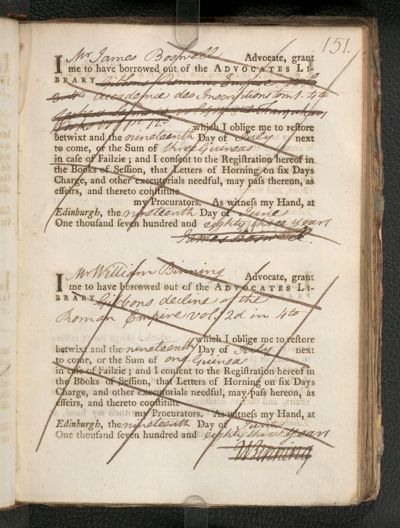 151.
I Mr James Boswell Advocate, grant
me to have borrowed out of the ADVOCATES LI-
BRARY
academie des Inscriptions tom 1. 4to
which I oblige me to restore
betwixt and the nineteenth Day of July next
to come, or the Sum of three Guineas
in case of Failzie; and I consent to the Registration hereof in
the Books of Session, that Letters of Horning on six Days
Charge, and other executorials needful, may pass thereon, as
effeirs, and thereto constitute
my Procurators. As witness my Hand, at
Edinburgh, the nineteenth Day of June
One thousand seven hundred and eighty three years
James Boswell.
I Mr William Binning Advocate, grant
me to have borrowed out of the ADVOCATES LI-
BRARY Gibbons decline of the
Roman Empire vol. 2d in 4to
which I oblige me to restore
betwixt and the nineteenth Day of July next
to come, or the Sum of one Guinea
in case of Failzie; and I consent to the Registration hereof in
the Books of Session, that Letters of Horning on six Days
Charge, and other executorials needful, may pass hereon, as
effeirs, and thereto constitute
my Procurators. As witness my Hand, at
Edinburgh, the nineteenth Day of June
One thousand seven hundred and eighty three years
W Binning